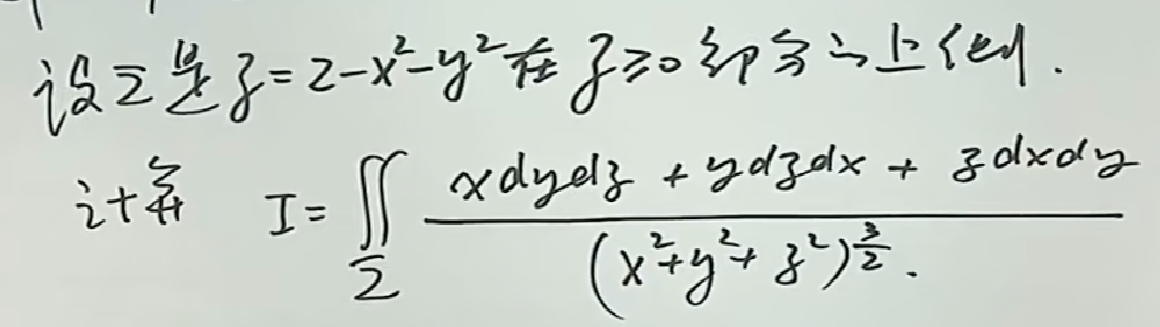 设Σ是z=2-x²-y²在z≥0部分的上侧.
计算 I=∬_Σ (xdydz + ydzdx + zdxdy)/(x²+y²+z²)^{3/2}.